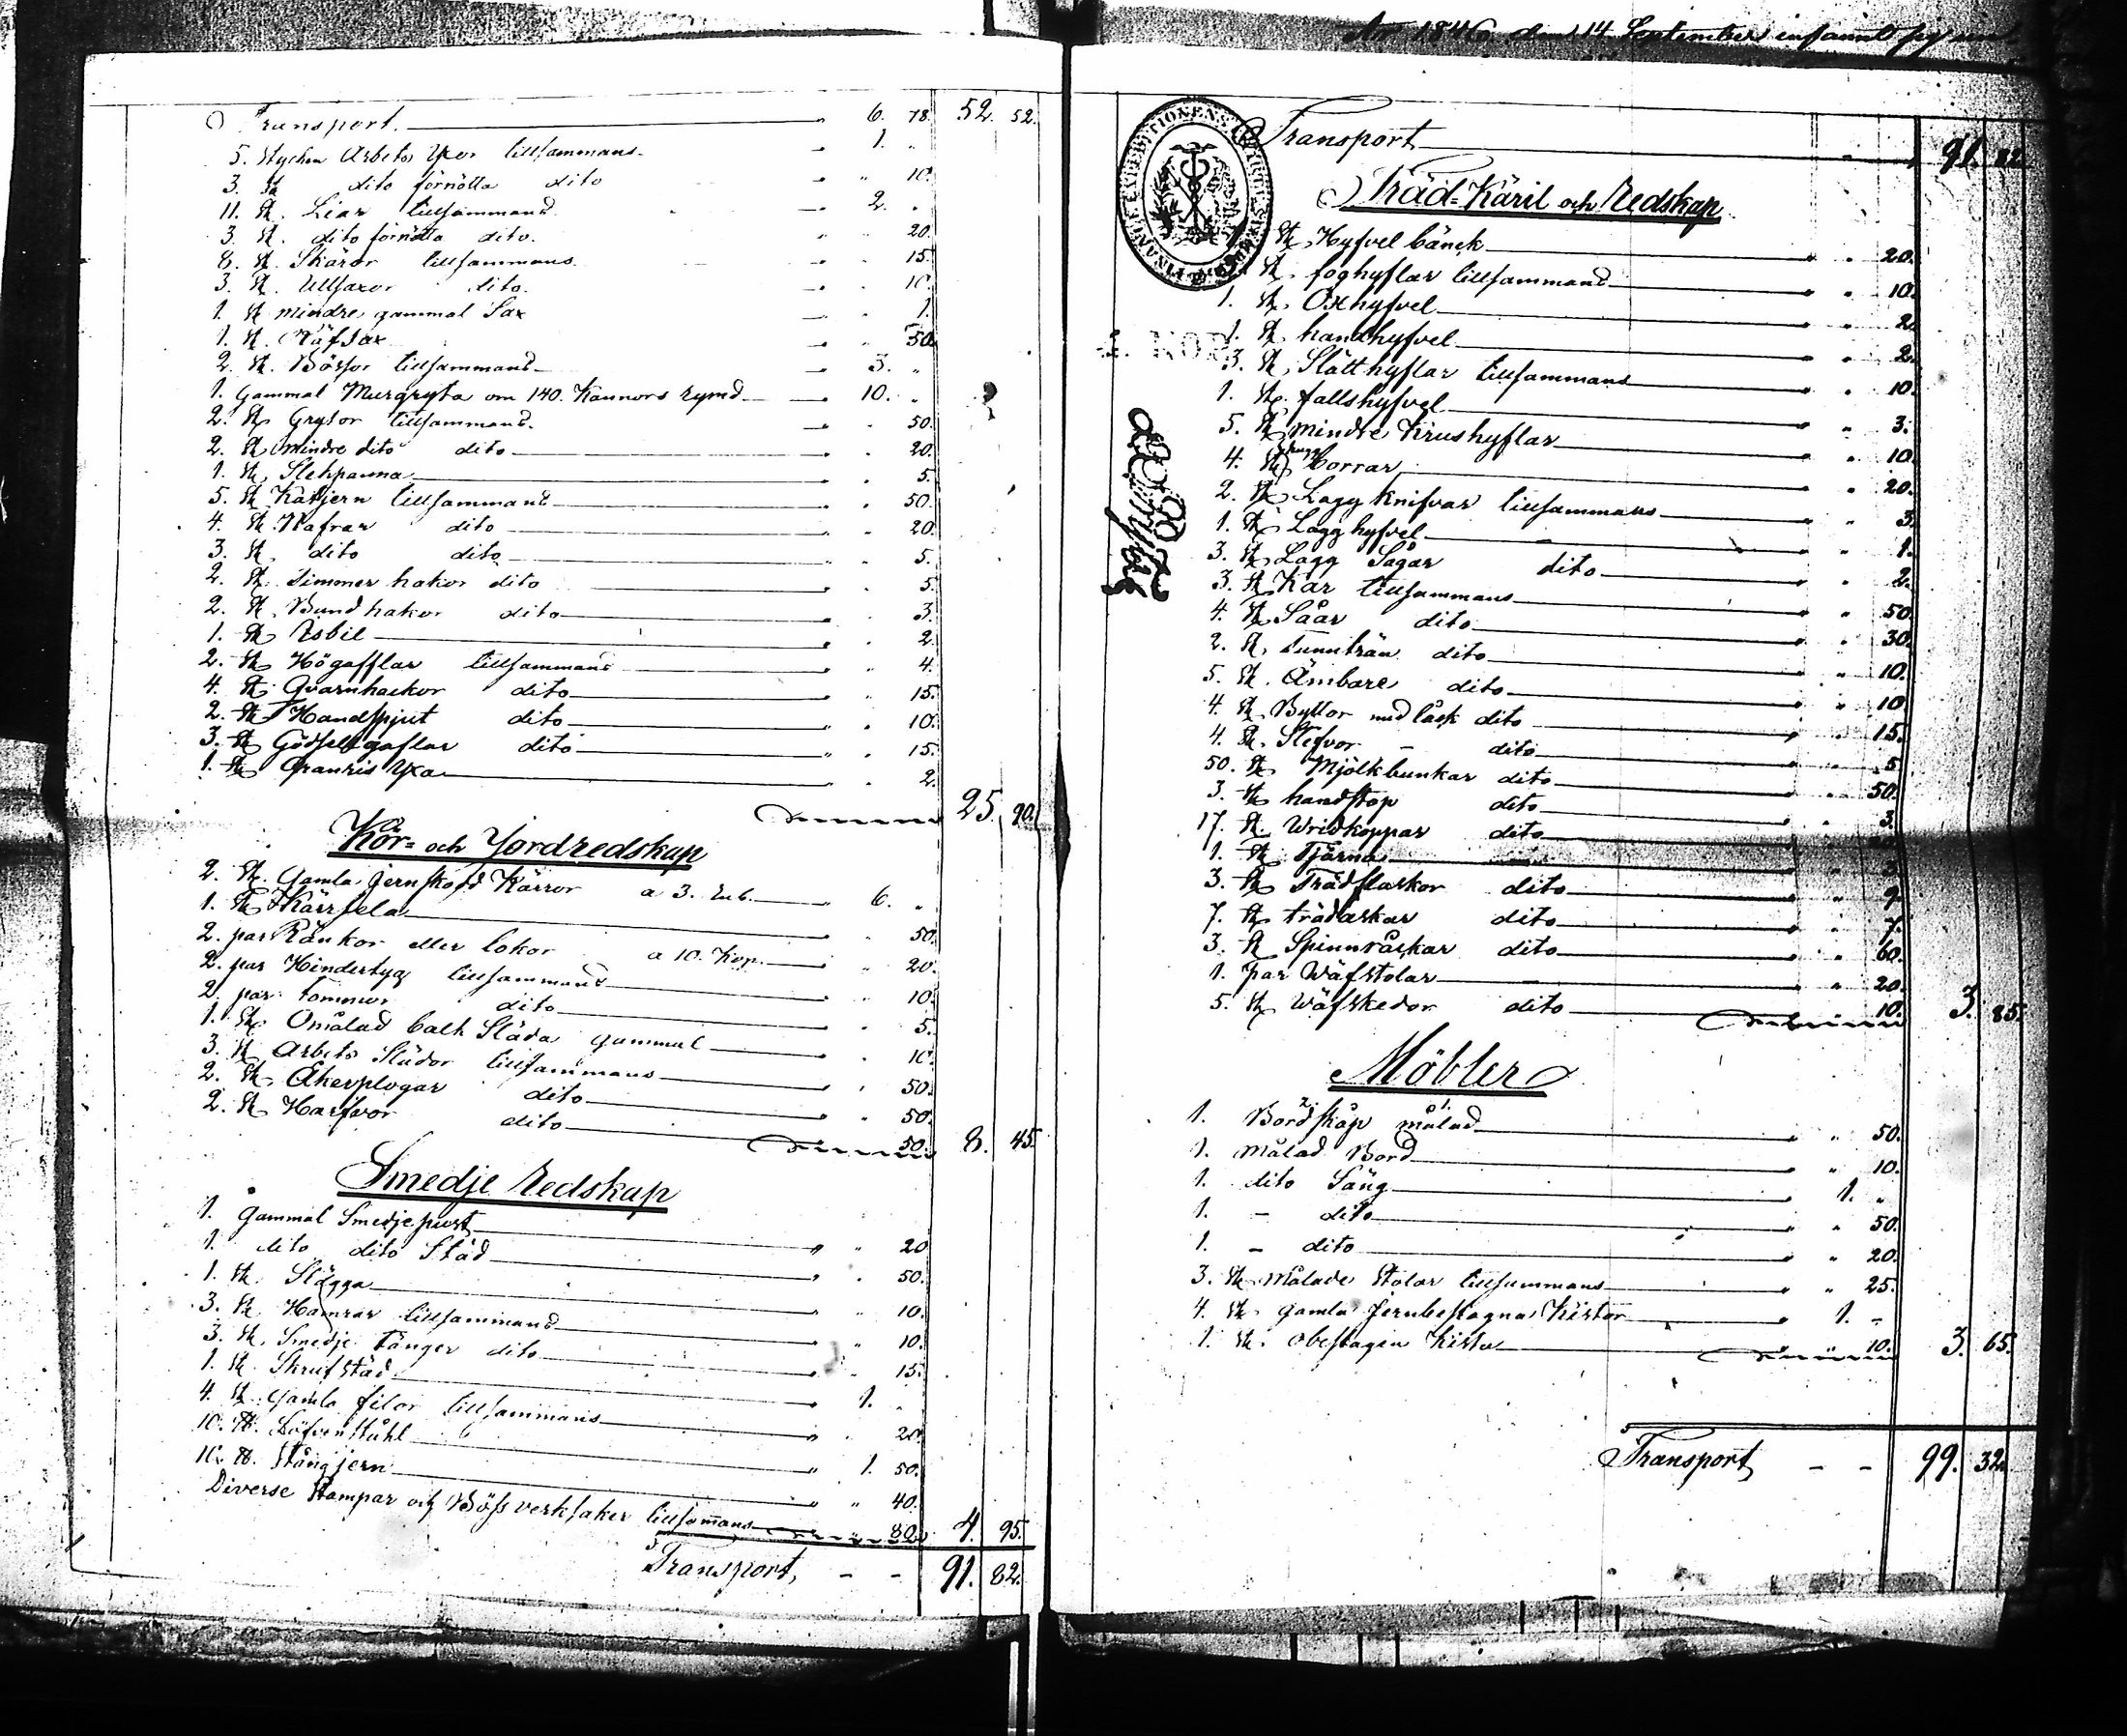 År 1846 den 14 September
Transport. 6. 78. 52. 52.
5. Stycken Arbets Yxor tillsammans 1. "
3. St dito förnötta dito " 10.
11. St. Liar tillsammans 2. "
3. St. dito förnötta dito. " 20.
8. St. Skäror tillsammans " 15.
3. St. Ullsaxor dito. " 10.
1. St mindre gammal Sax " 1.
1. St. Räfsax " 50.
2. St. Bössor tillsammans 3. "
1. Gammal Murgryta om 140. Kannors rymd 10. "
2. St Grytor tillsammans. " 50.
2. St mindre dito dito " 20.
1. St, Stekpanna " 5.
5. St tillsammans " 50.
4. St. Nafrar dito " 20.
3. St. dito dito " 5.
2. St. Timmer hakor dito " 5.
2. St. Bundhakor dito " 3.
1. St Isbil " 2.
2. St Högafflar tillsammans " 4.
4. St Qvarnhackor dito " 15.
2. St Handspjut dito " 10.
3. St Gödselgaflar dito " 15.
1. St Granris Yxa " 2.
25. 90.
Kör- och Jordredskap
2. St. Gamla jernskodd Kärror a 3. Rub. 6. "
1. St Kärrsela " 50.
2. par Ränkor eller lokor a 10. Kop. " 20.
2. par Hindertyg tillsammans " 10.
2. par Tömmor dito " 5.
1. St. Omålad Släda gammal " 10.
3. St Arbets Slädor tillsammans " 50.
2. St. Åkerplogar dito " 50.
2. St Harfvor dito 50. 8. 45.
Smedje Redskap
1. gammal Smedje pust " 20
1. dito dito Städ " 50.
1. St. Slägga " 10.
3. St Hamrar tillsammans " 10.
3. St. Smedje Tänger dito " 15.
1. St. Skrufstäd 1. "
4. St gamla filar tillsammans " 20.
10. ℔. Stål 1. 50.
℔. Stångjern " 40.
Diverse Stampar och tillsammans 80. 4. 95.
Transport, - - 91. 82.
Transport 91. 82
Träd-Käril och Redskap
St Hyfvel bänck " 20.
St. foghyflar tillsammans " 10.
1. St. Oxhyfvel " 2.
1. St handhyfvel " 2.
3. St, Slätthyflar tillsammans " 10.
1. St. fallshyfvel " 3.
5. St mindre Krushyflar " 10.
4. St borrar " 20.
2. St Lagg knifvar tillsammans " 3.
1. St Lagg hyfvel " 1.
3. St Lagg Sågar dito " 2.
3. St Kar tillsammans " 50.
4. St Såar dito " 30.
2. St, Tunnträn dito " 10.
5. St. Ämbare dito " 10
4. St Byttor med låck dito " 15.
4. St. Stefvor - dito " 5
50. St Mjölkbunkar dito " 50.
3. St handstop dito " 3.
17. St. Wridkoppar dito
1. St Tjärna " 3.
3. St Trädflaskor dito " 9.
7. St trädaskar dito " 7.
3. St Spinnråckar dito " 60.
1. par Wäfstolar " 20.
5. St Wäfskedor dito 10. 3. 85.
Möbler
1. Bordskåp målad " 50.
1. Målad Bord " 10.
1. dito Säng 1. "
1. - dito " 50.
1. - dito " 20.
3. St målade Stolar tillsammans " 25.
4. St. gamla Jernbeslagna Kistor 1. -
1. St. obeslagen Kista 10. 3. 65.
Transport - - 99. 32.